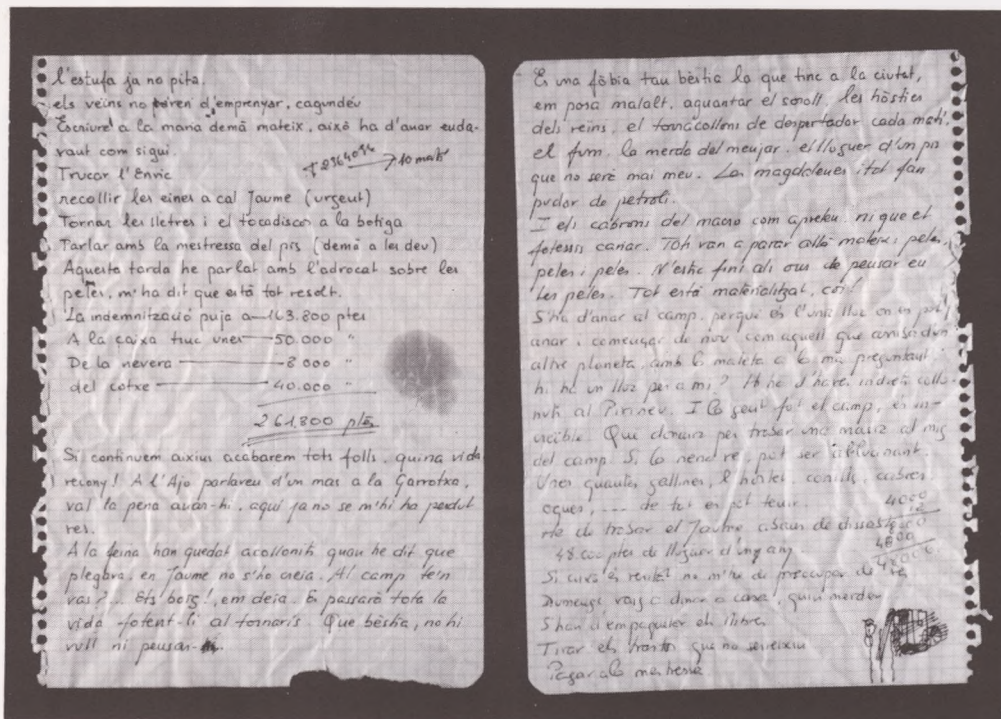 l'estufa ja no pita.
els veïns no paren d'emprenyar, cagundéu
Escriure a la mana demà mateix, això ha d'anar enda-
vant com sigui.
Trucar l'Enric
2364094 → 10 matí
recollir les eines a cal Jaume (urgent)
Tornar les lletres i el tocadiscos a la botiga
Parlar amb la mestressa del pis (demà a les deu)
Aquesta tarda he parlat amb l'advocat sobre les
peles, m'ha dit que està tot resolt.
La indemnització puja a — 163.800 ptes
A la caixa tinc unes — 50.000 "
De la nevera — 8 000 "
del cotxe — 40.000 "
261.800 ptes
Si continuem aixius acabarem tots folls, quina vida
recony! A l'Ajo parlaven d'un mas a la Garrotxa,
val la pena anar-hi, aquí ja no se m'hi ha perdut
res.
A la feina han quedat acollonits quan he dit que
plegava, en Jaume no s'ho creia. Al camp te'n
vas?... Ets boig!, em deia. Es passarà tota la
vida fotent-li al tornavís. Que bèstia, no hi
vull ni pensar
És una fòbia tan bèstia la que tinc a la ciutat,
em posa malalt, aguantar el soroll, les hòsties
dels veïns, el tocacollons de despertador cada matí,
el fum, la merda del menjar, el lloguer d'un pis
que no serà mai meu. Les magdalenes i tot fan
pudor de petroli.
I els cabrons del macro com apreten, ni que et
fotessis canar. Tots van a parar allà mateix: peles,
peles i peles. N'estic fins als ous de pensar en
les peles. Tot està materialitzat, coi!
S'ha d'anar al camp, perquè és l'únic lloc on es pot
anar i començar de nou com aquell que arriba d'un
altre planeta, amb la maleta a la mà preguntant:
hi ha un lloc per a mi? Hi ha d'haver indrets collo-
nuts al Pirineu. I la gent fot el camp, és in-
creïble. Qui donaria per trobar una masia al mig
del camp. Si la
Unes quantes gallines, l'hortet, conills, cabres,
oques, .... de tot es pot tenir.
4000
He de trobar el Jaume abans de dissabte
48.000 ptes de lloguer d'un any.
Si això és veritat no m'he de preocupar de res
Diumenge vaig a dinar a casa, quin merder
S'han d'empaquetar els llibres
Tirar els trastos que no serveixin
Pagar a la mestressa